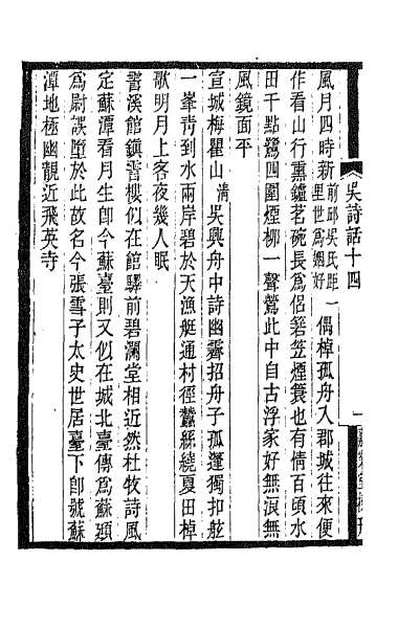 吳詩話十四
一
風月四時新前邱吳氏距一里世爲姻好偶棹孤舟入郡城往來便
作看山行熏鑪茗碗長爲侶箬笠煙簑也有情百頃水
田千點鷺四圍煙柳一聲鶯此中自古浮家好無浪無
風鏡面平
宣城梅瞿山清吳興舟中詩幽霽招舟子孤蓬獨扣舷
一峯靑到水兩岸碧於天漁艇通村徑蠶絲繞夏田棹
歌明月上客夜幾人眠
霅溪館鎭霅樓似在館驛前碧瀾堂相近然杜牧詩風
定蘇潭看月生卽今蘇臺則又似在城北臺傳爲蘇頲
爲尉誤墮於此故名今張雪子太史世居臺下卽號蘇
潭地極幽觀近飛英寺